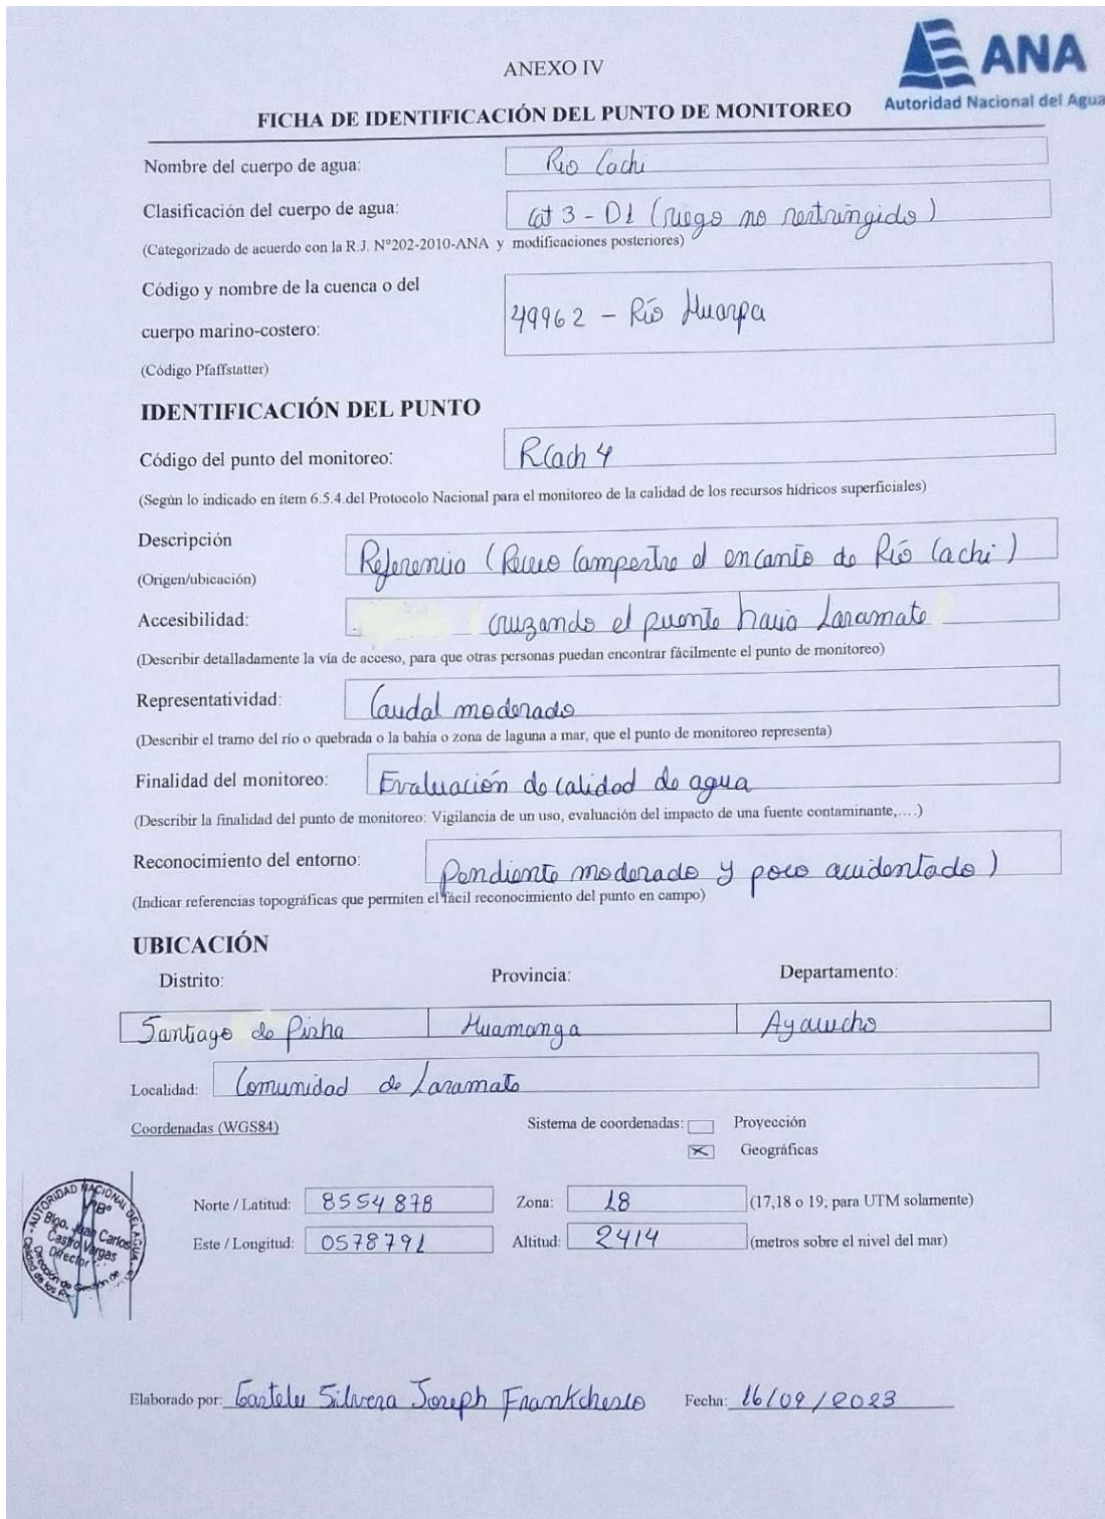 ANEXO IV
ANA
Autoridad Nacional del Agua
FICHA DE IDENTIFICACIÓN DEL PUNTO DE MONITOREO
Nombre del cuerpo de agua: Rio Cachi
Clasificación del cuerpo de agua: Cat 3 - D1 (riego no restringido)
(Categorizado de acuerdo con la R.J. N°202-2010-ANA y modificaciones posteriores)
Código y nombre de la cuenca o del
cuerpo marino-costero: 49962 - Río Huarpa
(Código Pfaffstatter)
IDENTIFICACIÓN DEL PUNTO
Código del punto del monitoreo: RCach 4
(Según lo indicado en ítem 6.5.4.del Protocolo Nacional para el monitoreo de la calidad de los recursos hídricos superficiales)
Descripción Referencia (Recreo Campestre el encanto de Río Cachi)
(Origen/ubicación)
Accesibilidad: cruzando el puente hacia Laramate
(Describir detalladamente la vía de acceso, para que otras personas puedan encontrar fácilmente el punto de monitoreo)
Representatividad: Caudal moderado
(Describir el tramo del río o quebrada o la bahía o zona de laguna a mar, que el punto de monitoreo representa)
Finalidad del monitoreo: Evaluación de calidad de agua
(Describir la finalidad del punto de monitoreo: Vigilancia de un uso, evaluación del impacto de una fuente contaminante,....)
Reconocimiento del entorno: Pendiente moderado y poco accidentado)
(Indicar referencias topográficas que permiten el fácil reconocimiento del punto en campo)
UBICACIÓN
Distrito: Provincia: Departamento:
Santiago de Pisha Huamanga Ayacucho
Localidad: Comunidad de Laramate
Coordenadas (WGS84) Sistema de coordenadas: Proyección
Geográficas
Norte / Latitud: 8554878 Zona: 18 (17,18 o 19; para UTM solamente)
Este / Longitud: 0578791 Altitud: 2414 (metros sobre el nivel del mar)
AUTORIDAD NACIONAL DEL AGUA
VºBº
Blgo. Juan Carlos
Castro Vargas
Director
Dirección de Gestión de
Calidad de los
Elaborado por: Silvera Joseph Frankchesco Fecha: 16/09/2023